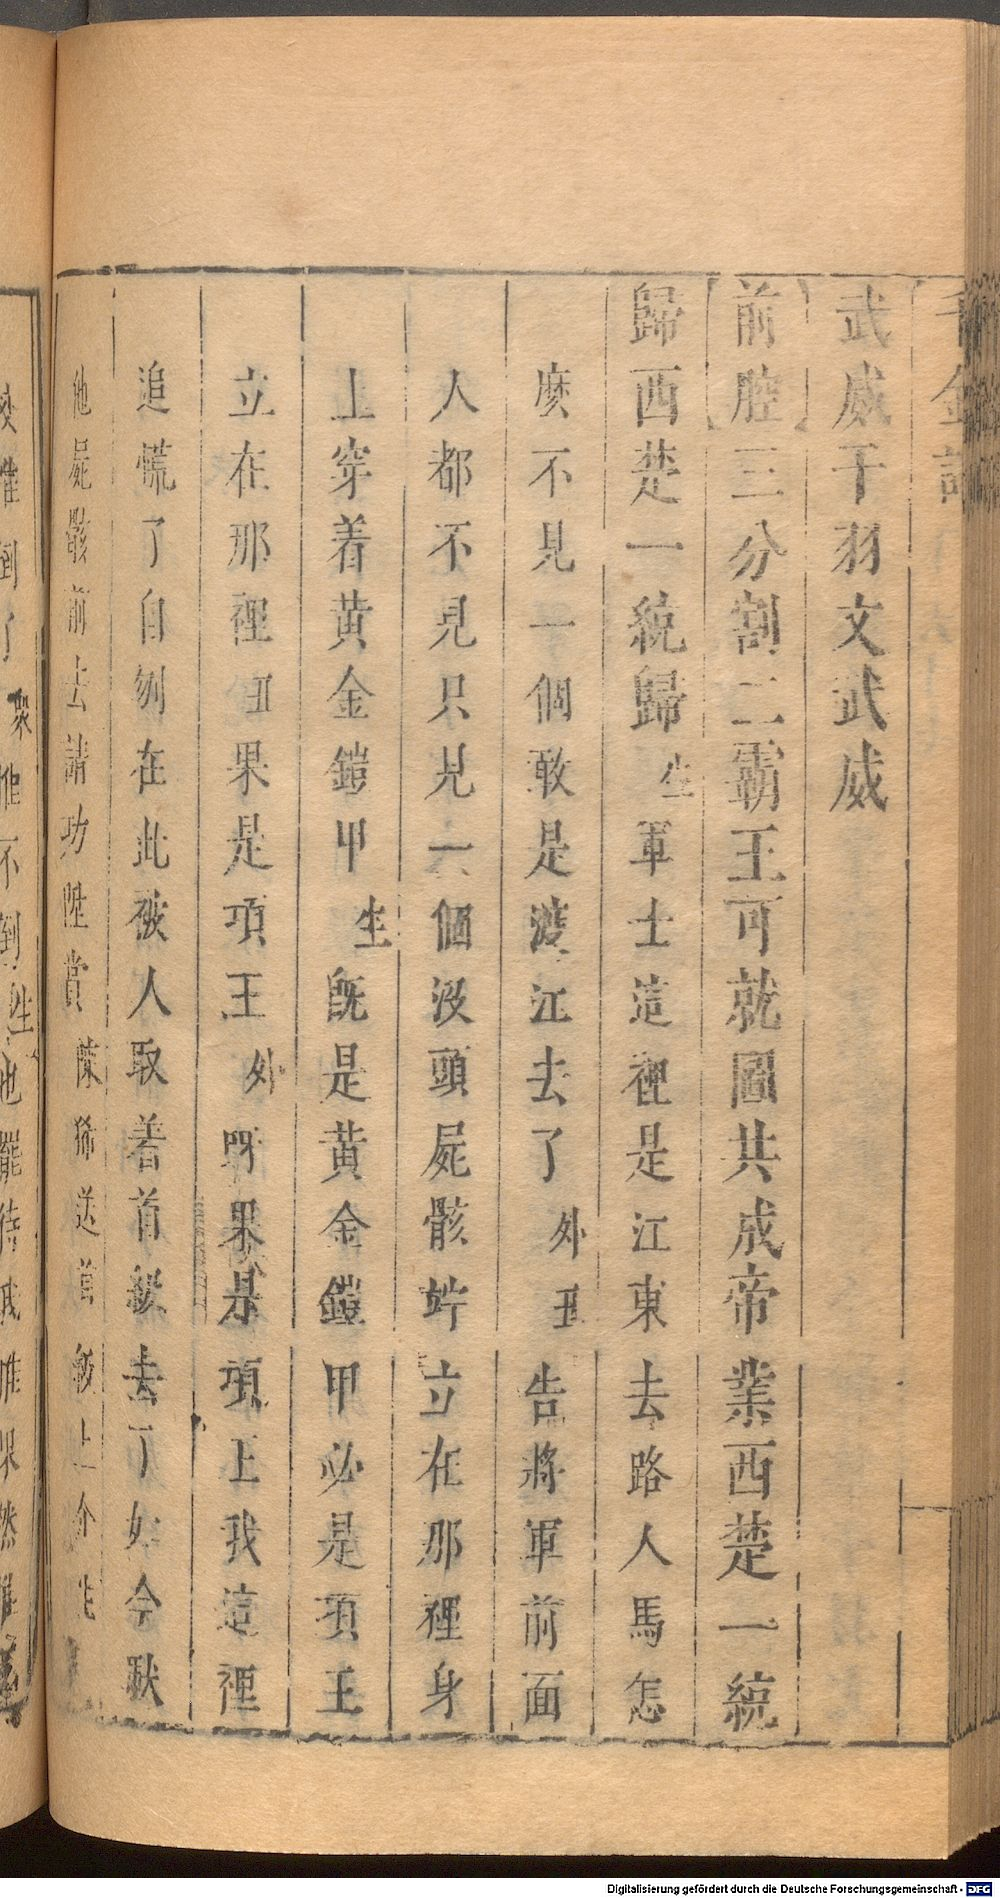 千金記
武威干羽文武威
前腔三分割二霸王可就圖共成帝業西楚一統
歸西楚一統歸生軍士這裡是江東去路人馬怎
麽不見一個敢是渡江去了外丑告將軍前面
人都不見只見一個没頭屍骸竚立在那裡身
上穿着黄金鎧甲生旣是黄金鎧甲必是項王
立在那裡丑果是項王外呀果是項王我這裡
追慌了自刎在此被人取着首級去了如今
他屍骸前去請功陞賞陳豨送首級上介生
倒了衆推不倒生也罷待我推果然
Digitalisierung gefördert durch die Deutsche Forschungsgemeinschaft - DFG